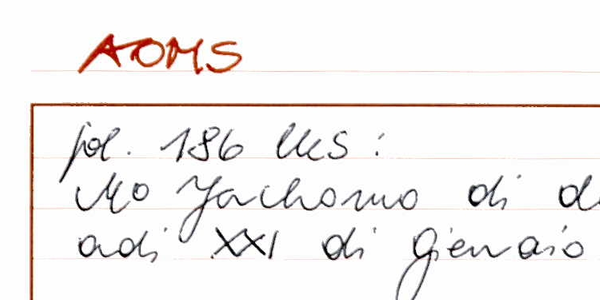 AOMS
fol. 186 MS:
Mo Jachomo di d
adi XXI di Giennaio